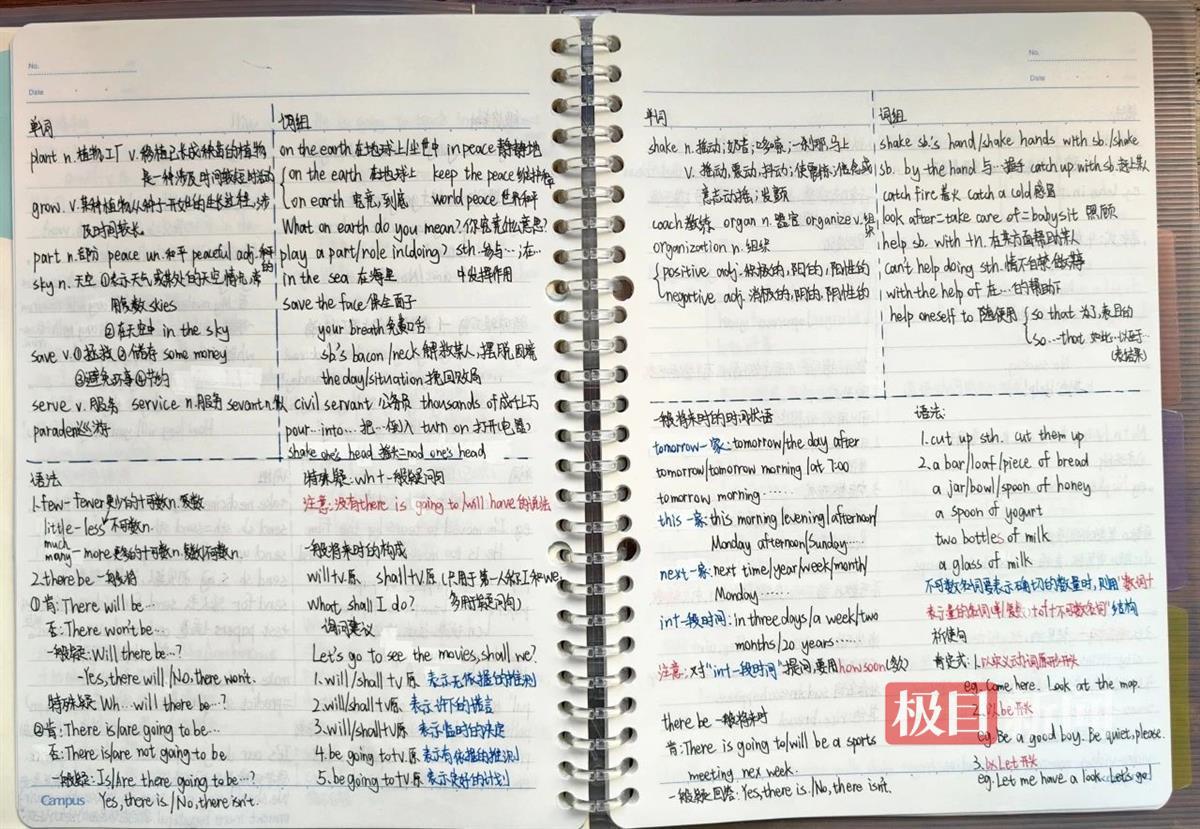 No.
Date
单词
plant n.植物工厂 v.移植已长成种苗的植物
是一种涉及时间较短时活动
grow. v.某种植物从种子开始的生长过程,涉
及时间较长.
part n.部分 peace un.和平 peaceful adj.和平的
sky n.天空 ①表示天气或某处的天空情况,常
用复数skies
②在天空中 in the sky
save v.①拯救②储存 some money
③避免环事④节约
serve v.服务 service n.服务 sevant n.仆
paraden巡游
词组
on the earth 在地球上/尘色中 in peace 静静地
on the earth 在地球上 keep the peace 维护和平
on earth 究竟,到底 world peace 世界和平
What on earth do you mean?你究竟什么意思?
play a part/role in(doing) sth.参与…;在…
in the sea 在海里 中发挥作用
save the face 保全面子
your breath 免费口舌
sb's bacon/neck 解救某人,摆脱困境
the day/situation 挽回败局
civil servant 公务员 thousands of 成千上万
pour…into…把…倒入 turn on 打开(电器)
shake one's head 摇头=nod one's head
语法
1.few-fewer更少的+可数n.复数
little-less+不可数n.
much
many-more 更多的+可数n.复数/不可数n.
2.there be 一般将
①肯:There will be…
否:There won't be…
一般疑:Will there be…?
-Yes,there will/No,there won't.
特殊疑 Wh…will there be…?
②肯:There is/are going to be…
否:There is/are not going to be
一般疑:Is/Are there going to be…?
Yes,there is./No,there isn't.
Campus
特殊疑:wh+一般疑问句
注意:没有there is going to/will have的说法
一般将来时的构成
will+v.原 shall+v.原 (只用于第一人称I和we,
What, shall I do? 多用于疑问句)
询问建议
Let's go to see the movies,shall we?
1.will/shall+v.原 表示无依据的推测
2.will/shall+v.原 表示许下的诺言
3.will/shall+v.原 表示临时的决定
4.be going to+v.原 表示有依据的推测
5.be going to+v.原 表示安好的计划
No.
Date
单词
shake n.摇动;奶昔;哆嗦;一刹那,马上
v.摇动,震动,抖动;使震惊;
意志动摇;发颤
coach教练 organ n.器官 organize v.组织
organization n.组织
positive adj.积极的,阳的,阳性的
negative adj.消极的,阴的,阴性的
词组
shake sb's hand/shake hands with sb./shake
sb. by the hand 与…握手 catch up with sb.赶上某人
catch fire 着火 catch a cold 感冒
look after=take care of=babysit 照顾
help sb. with +n. 在某方面帮助某人
can't help doing sth.情不自禁做某事
with the help of 在…的帮助下
help oneself to 随便用 so that 为了,表目的
so…that 如此…以至于…
(表结果)
一般将来时的时间状语
tomorrow一家:tomorrow/the day after
tomorrow/tomorrow morning/at 7:00
tomorrow morning……
this一家:this morning/evening/afternoon/
Monday afternoon/Sunday……
next一家:next time/year/week/month/
Monday……
in+一段时间:in three days/a week/two
months/20 years……
注意:对"in+一段时间"提问要用how soon(多久)
there be 一般将来时
肯:There is going to/will be a sports
meeting nex week.
一般疑回答:Yes,there is./No,there isn't.
语法:
1.cut up sth. cut them up
2.a bar/loaf/piece of bread
a jar/bowl/spoon of honey
a spoon of yogurt
two bottles of milk
a glass of milk
不可数名词要表示确切的数量时,则用"数词+
表示量的名词(单/复)+of+不可数名词"结构
祈使句
肯定式:1.以实义动词原形开头
eg.Come here. Look at the map.
2.以be开头
eg.Be a good boy. Be quiet,please.
3.以Let开头
eg.Let me have a look. Let's go!
极目